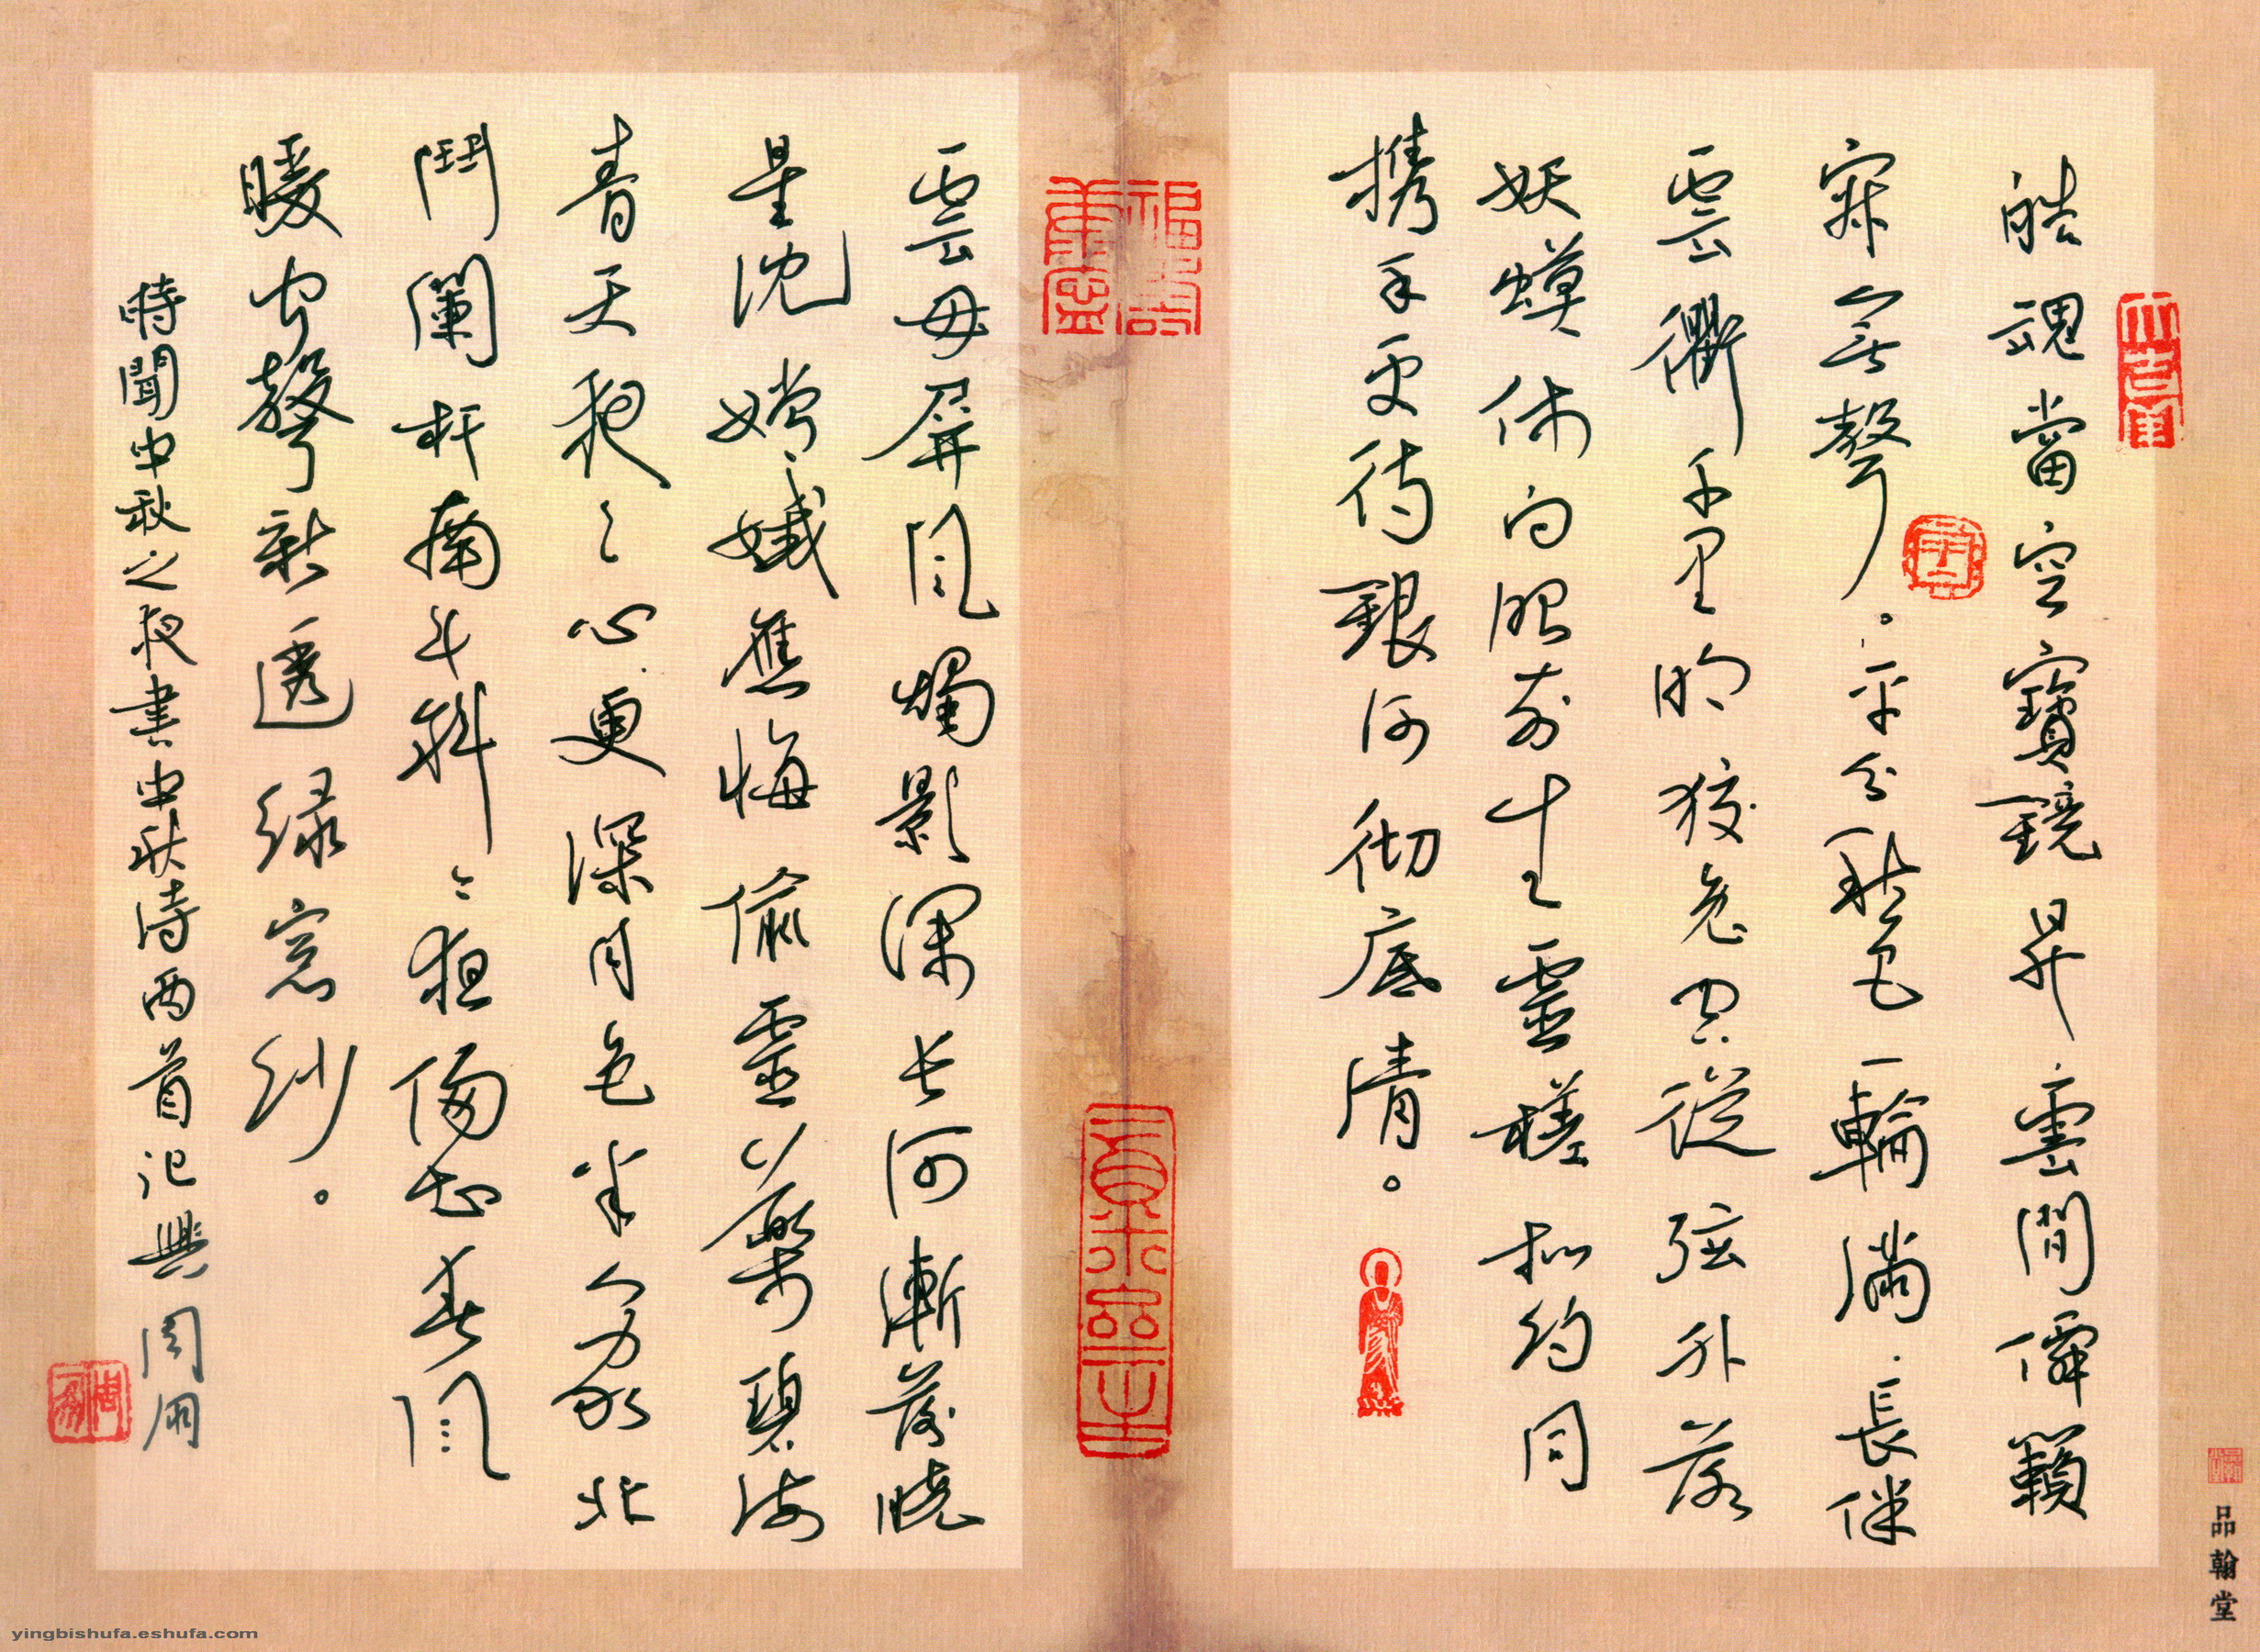 皓魂當空寶鏡昇雲間僊籟
寂無聲。平分秋色一輪滿長伴
雲衢千里明狡兔空從弦外落
妖蟆休向眼前生靈槎拟約同
携手更待銀河彻底清。
雲母屏風燭影深長河漸落曉
星沈嫦娥應悔偷靈藥碧海
青天夜〻心更深月色半人家北
鬥闌杆南斗斜今夜偏知春風
暖虫聲新透綠窓紗。
時聞中秋之夜書中秋诗两首记興 周
品翰堂
yingbishufa.eshufa.com